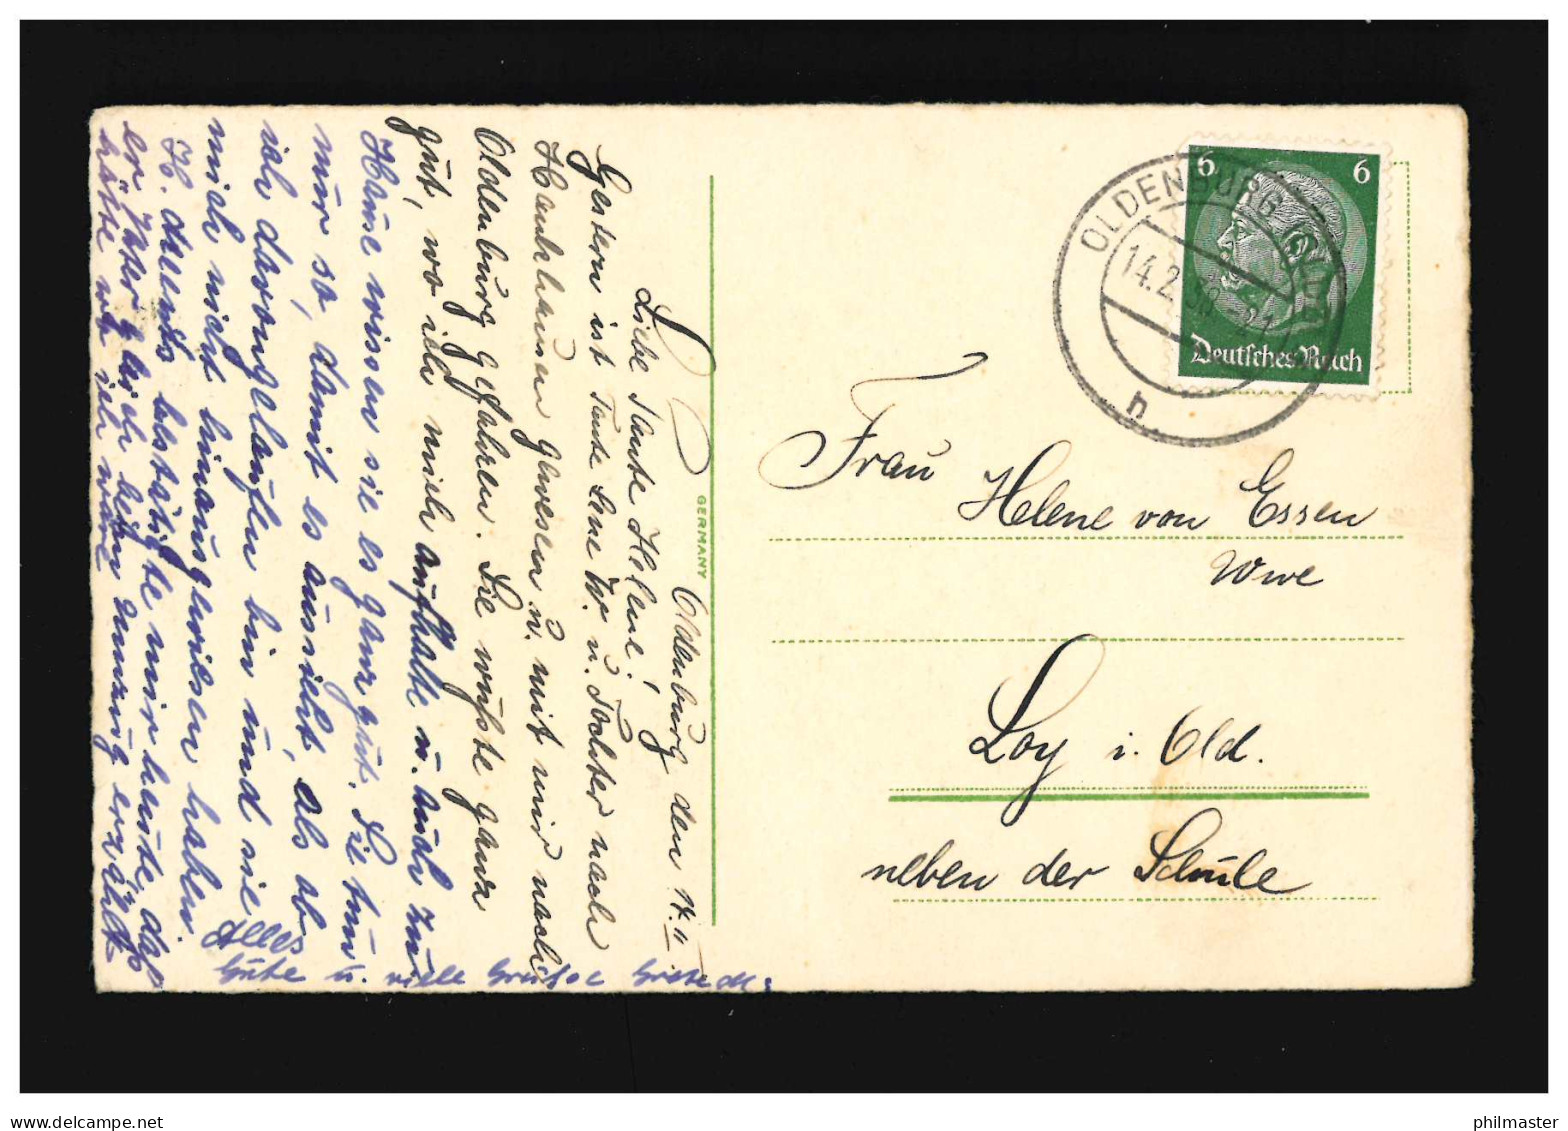 Oldenburg den 14.II.
Liebe Tante Helene!
Gestern ist Tante Lene W. u. Tochter nach
Hankhausen gewesen u. mit mir nach
Oldenburg gefahren. Sie wußte ganz
gut, wo ich mich aufhalte u. auch zu
Hause wissen sie es ganz gut. Sie tun
nur so, damit es aussieht, als ob
ich davongelaufen bin und sie
mich nicht hinausgewiesen haben.
H. bestätigte mir heute, daß
er
hätte wo ich wäre
Alles
Gute u. viele Grüße
GERMANY
6 6
Deutsches Reich
OLDENBURG (OLDB)
14.2. 21
h
Frau Helene von Essen
Wwe
Loy i. Old.
neben der Schule
www.delcampe.net
philmaster